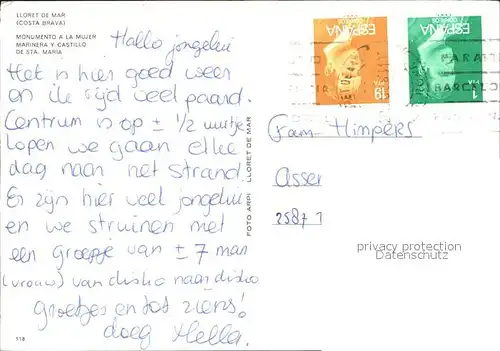 LLORET DE MAR
(COSTA BRAVA)
MONUMENTO A LA MUJER
MARINERA Y CASTILLO
DE STA. MARIA
Hallo jongelui
Het is hier goed weer
en ik rijd veel paard.
Centrum is op ± 1/2 uurtje
lopen we gaan elke
dag naar het strand.
Er zijn hier veel jongelui
en we struinen met
een groepje van ± 7 man
(vrouw) van disko naar disko
groetjes en tot ziens!
doeg Hella.
118
FOTO ARPI - LLORET DE MAR
ESPAÑA
CORREOS
19
PTA
ESPAÑA
CORREOS
1
PTA
PARA
BARCELO
Fam Himpers
Asser
25871
privacy protection
Datenschutz